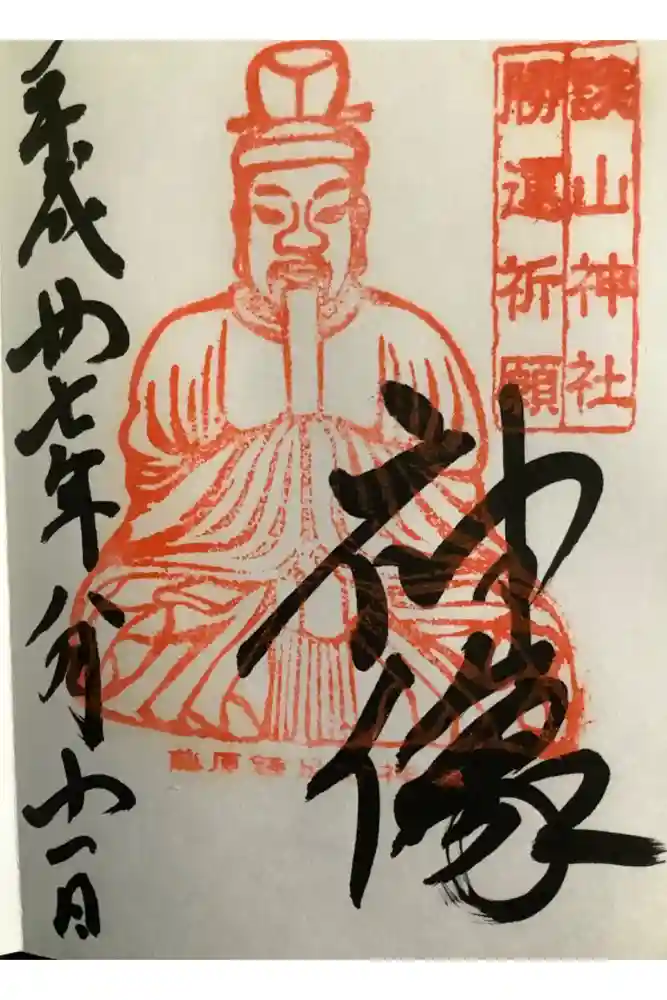 談山神社
勝運祈願
神像
藤原鎌
平成廿七年八月廿一日